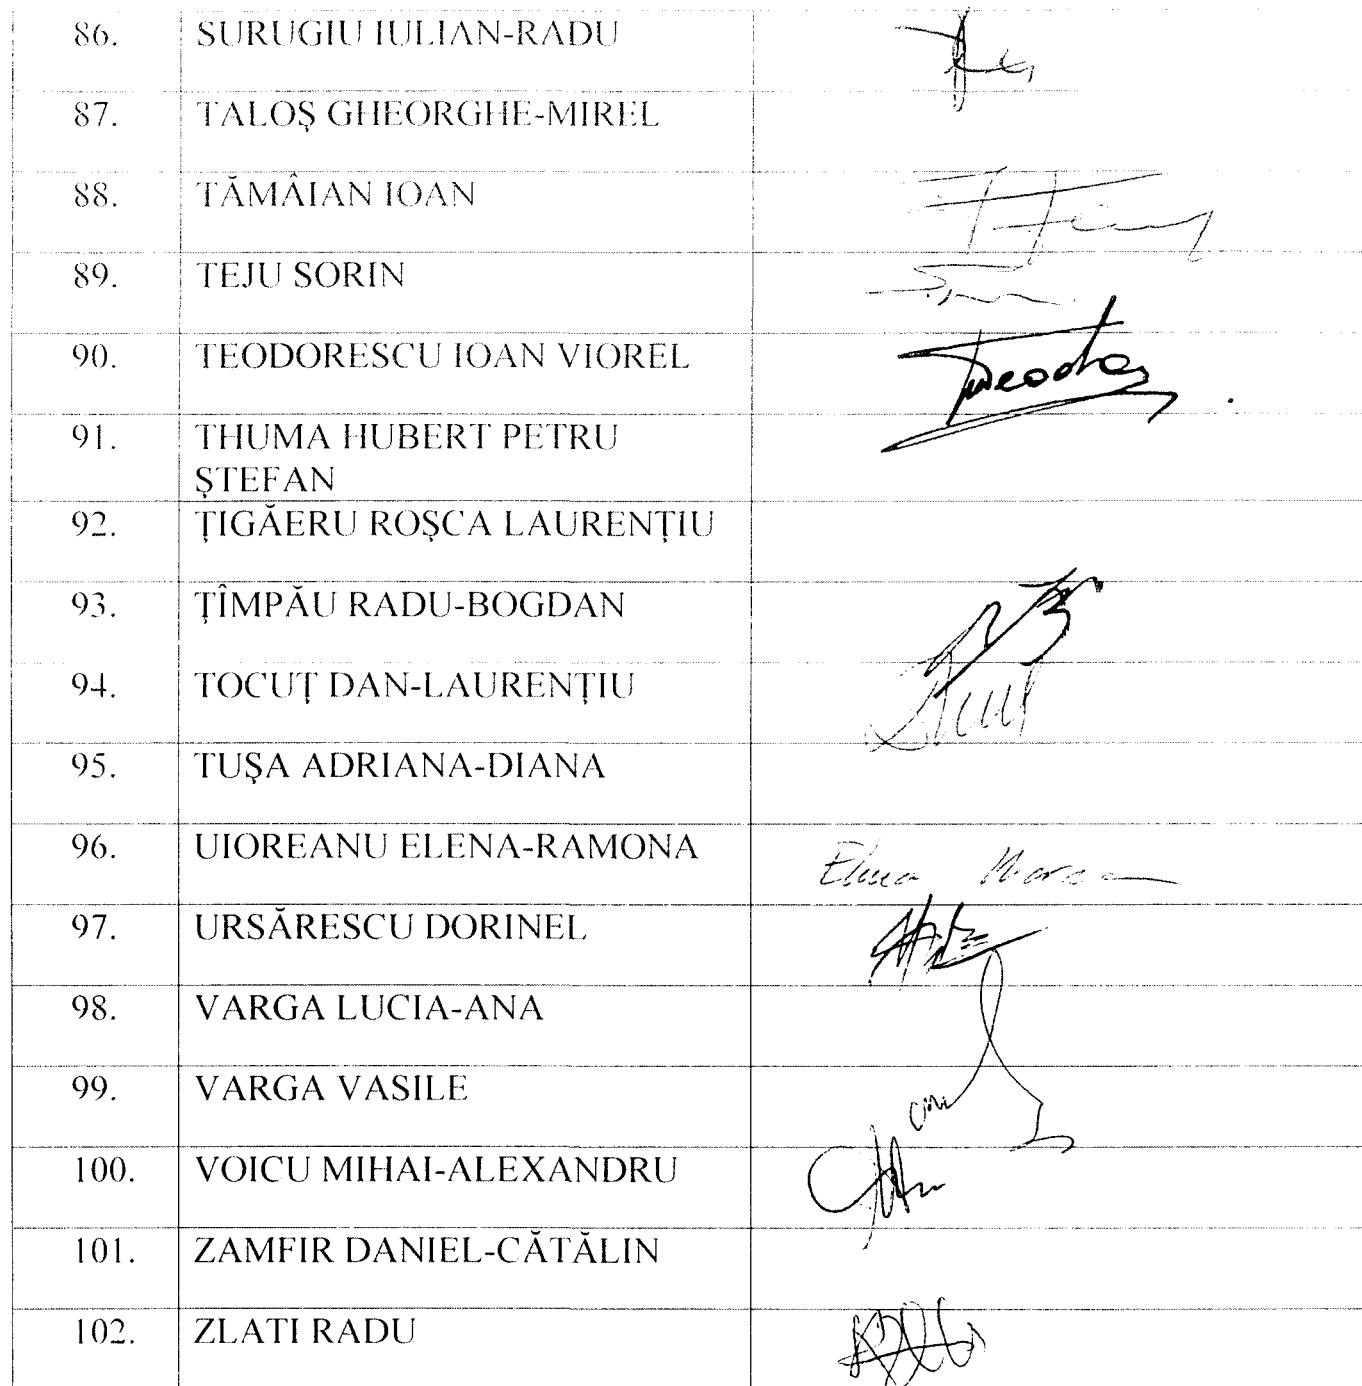 86. SURUGIU IULIAN-RADU
87. TALOȘ GHEORGHE-MIREL
88. TĂMÂIAN IOAN
89. TEJU SORIN
90. TEODORESCU IOAN VIOREL
91. THUMA HUBERT PETRU
ȘTEFAN
92. ȚIGĂERU ROȘCA LAURENȚIU
93. ȚÎMPĂU RADU-BOGDAN
94. TOCUȚ DAN-LAURENȚIU
95. TUȘA ADRIANA-DIANA
96. UIOREANU ELENA-RAMONA
97. URSĂRESCU DORINEL
98. VARGA LUCIA-ANA
99. VARGA VASILE
100. VOICU MIHAI-ALEXANDRU
101. ZAMFIR DANIEL-CĂTĂLIN
102. ZLATI RADU